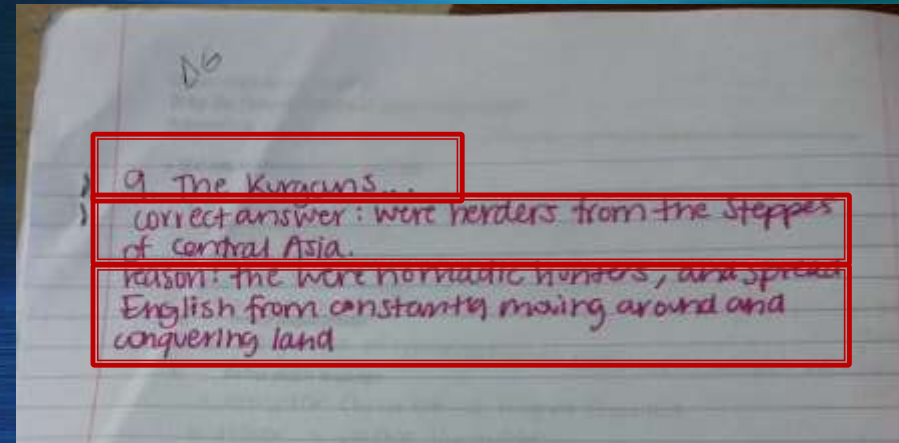 D6
9 The Kurgans...
correct answer: were herders from the steppes
of central Asia.
reason: the were nomadic hunters, and spread
English from constantly moving around and
conquering land